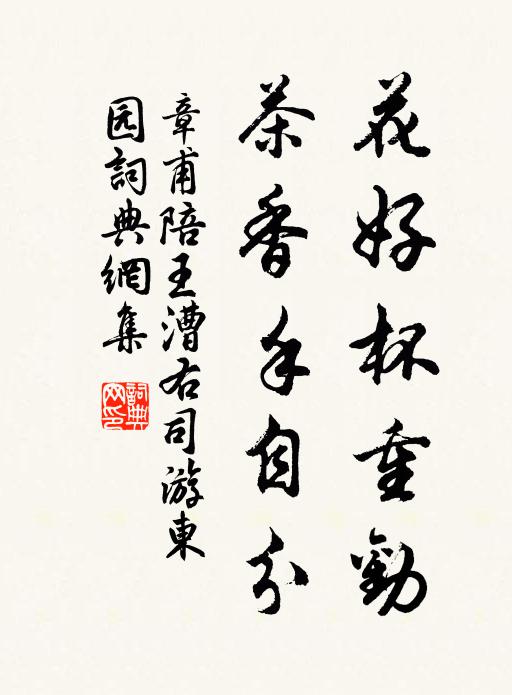 花好杯重勸
茶香手自分
章甫陪王漕右司游東
园詞典網集
詞典網印